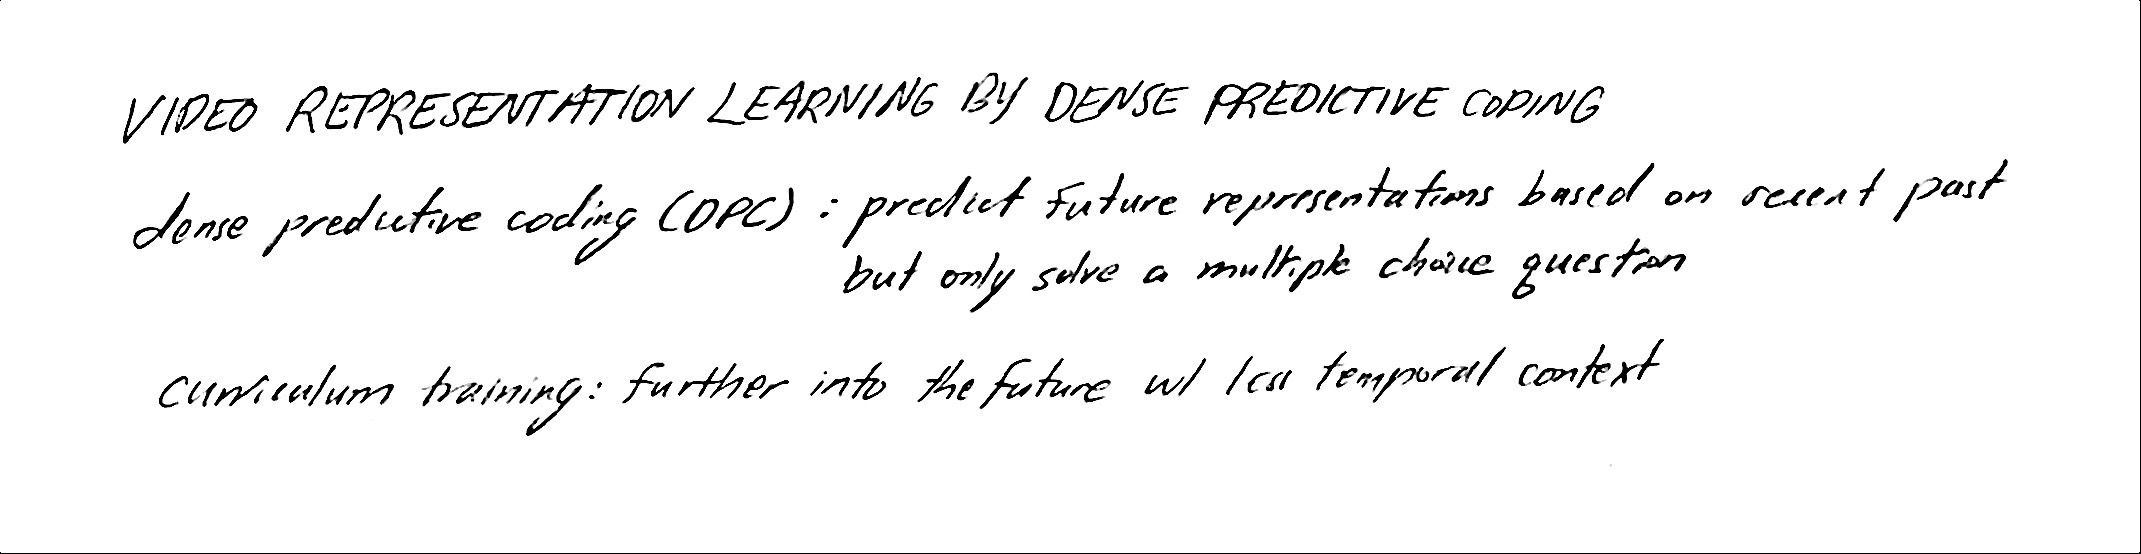 VIDEO REPRESENTATION LEARNING BY DENSE PREDICTIVE CODING
dense predictive coding (DPC) : predict future representations based on recent past
but only solve a multiple choice question
curriculum training: further into the future w/ less temporal context